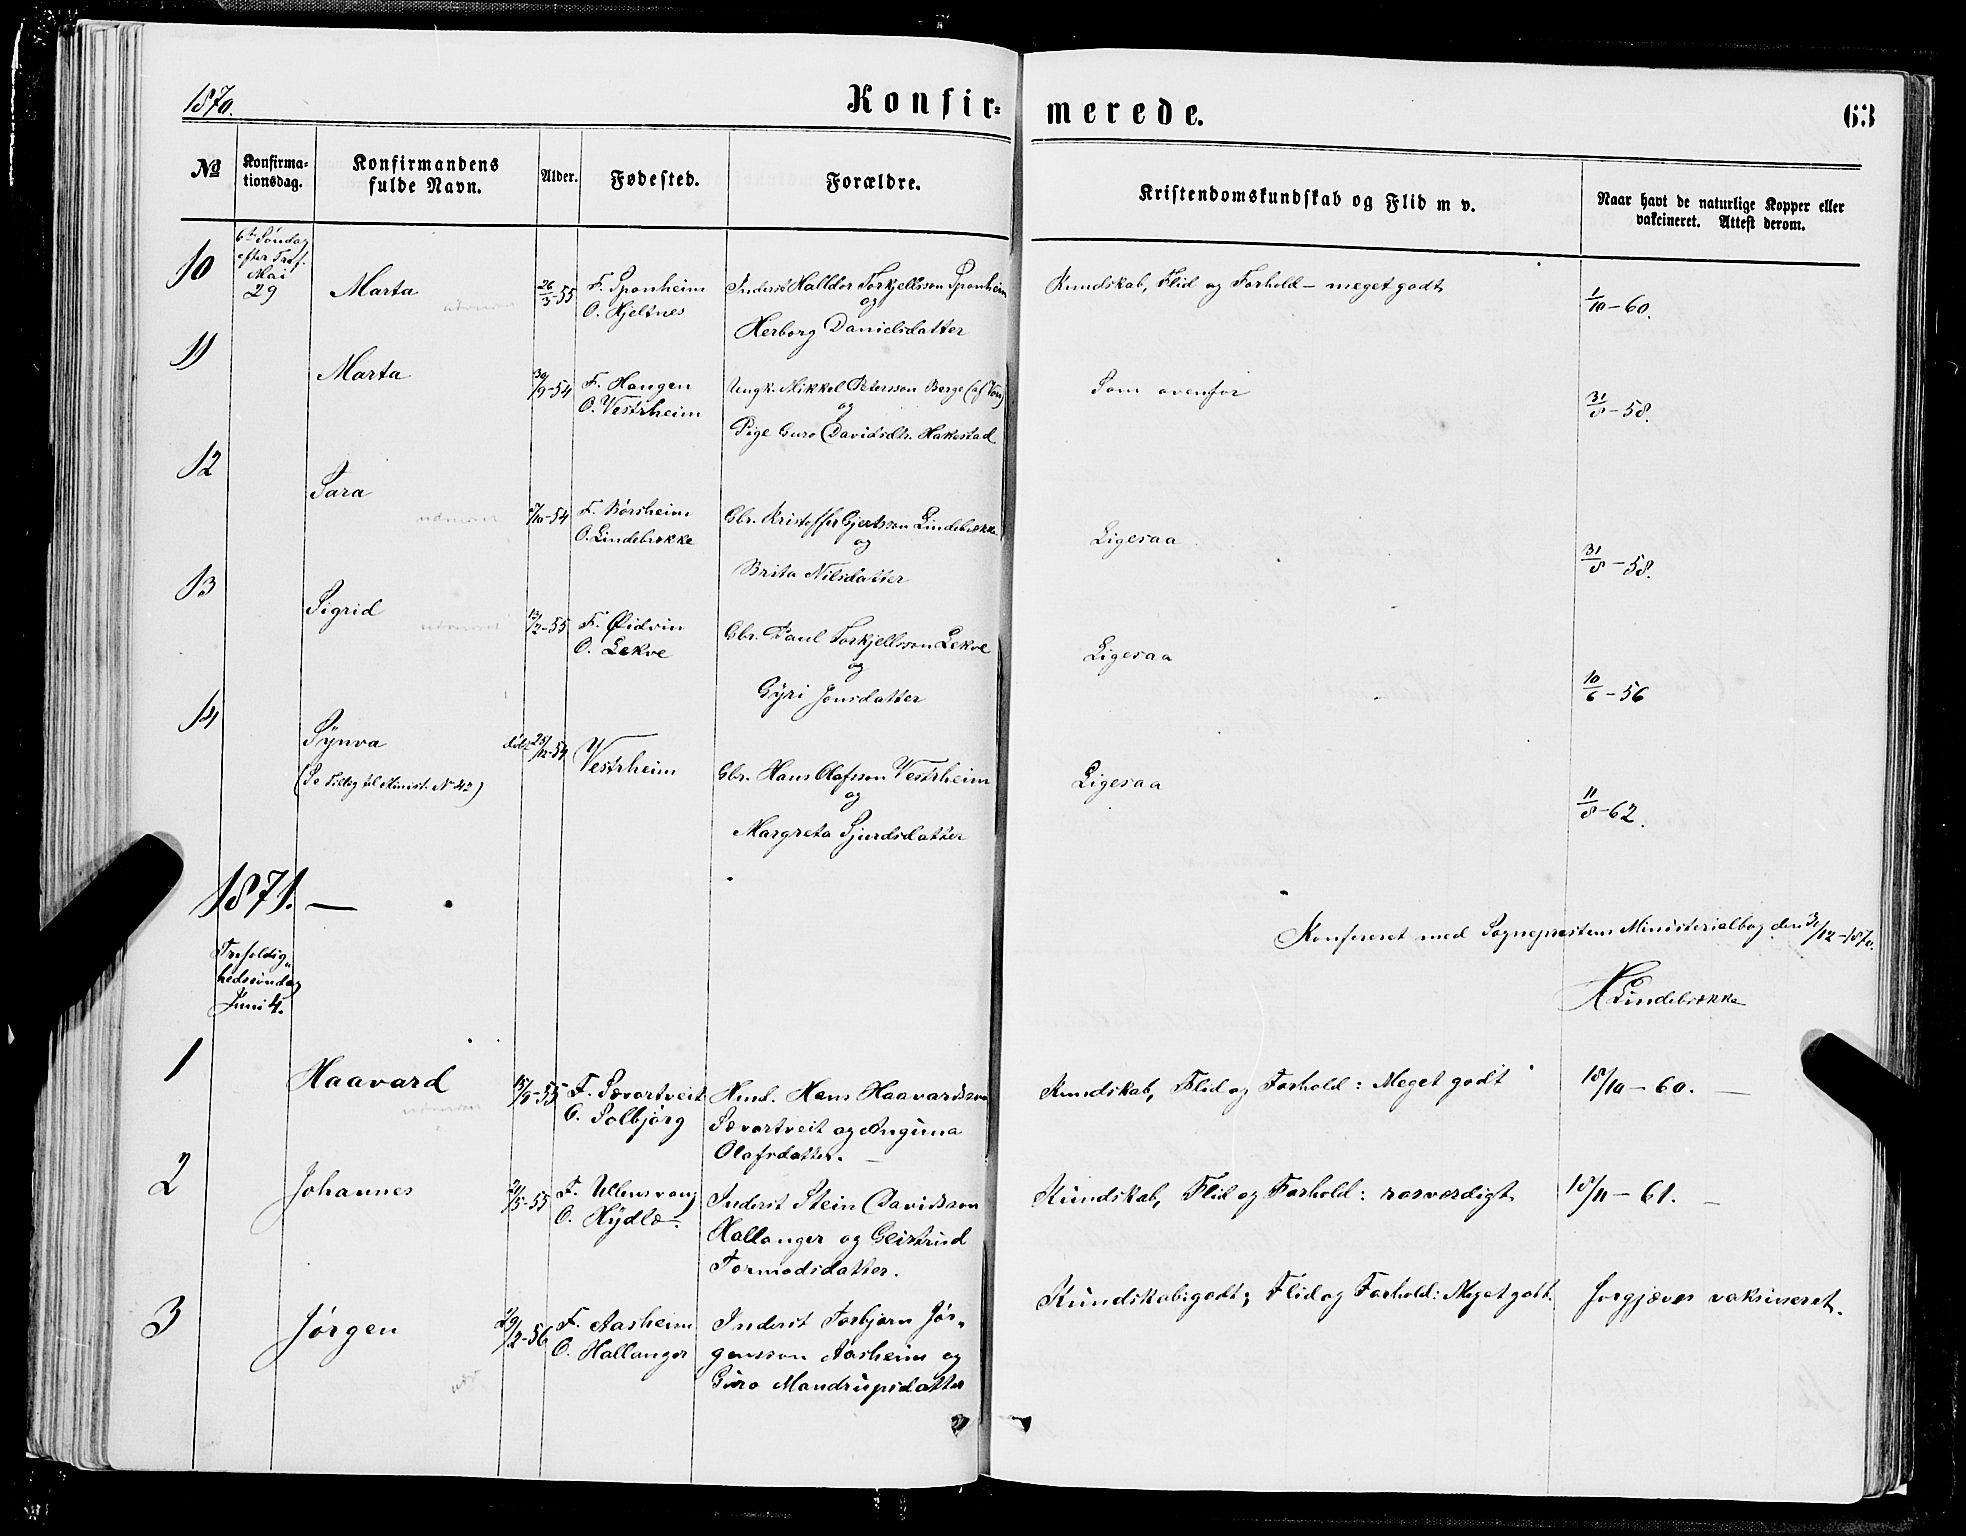 1870.
Konfir=
merede.
63
No
Konfirma-
tionsdag.
Konfirmandens
fulde Navn.
Alder.
Fødested.
Forældre.
Kristendomskundskab og Flid m v.
Naar havt de naturlige Kopper eller
vakcineret. Attest derom.
6te Søndag
efter Tref.
Mai
29
10
Marta
26/3-55
F. Sponheim
O. Hjeltnes
Inderst Halldor Torkjellsson Sponheim
og
Herborg Danielsdatter
Kundskab, Flid og Forhold - meget godt
1/10-60.
11
Marta
30/9-54
F. Haugen
O. Vestrheim
Ungk. Mikkel Petersson Berge (af Vors)
og
Pige Guro Davidsdtr. Hakestad
Som ovenfor
31/8-58.
12
Sara
/10-54
F. Børsheim
O. Lindebrekke
Gbr. Kristoffer Gjertsson Lindebrekke
og
Brita Nilsdatter
Ligesaa
31/8-58.
13
Sigrid
13/2-55
F. Øidvin
O. Lekve
Gbr. Paul Torkjellsson Lekve
og
Gyri Jonsdatter
Ligesaa
10/6-56
14
Synva
(Se Tillæg til Minist. No 42)
25/12-54
Vestrheim
Gbr. Hans Olafsson Vestrheim
og
Margreta Sjurdsdatter
Ligesaa
11/8-62.
1871. —
Konfereret med Sogneprestens Ministerialbog den 31/12-1870.
Lindebrekke
Trefoldig„
hedssøndag
Juni 4.
1
Haavard
15/9-55
F. Sævartveit
O. Solbjørg
Husd. Hans Haavardsson
Sævartveit og Anguna
Olafsdatter. —
Kundskab, Flid og Forhold: Meget godt
18/10-60. —
2
Johannes
21/5-55
F. Ullensvang
O. Hydle.
Inderst Stein Davidsson
Hallanger og Geirtrud
Tormodsdatter.
Kundskab, Flid og Forhold: rosværdigt
18/11-61. —
3
Jørgen
29/2-56
F. Aasheim
O. Hallanger
Inderst Torbjørn Jør„
gensson Aasheim og
Guro Mandrupsdatter
Kundskab: godt; Flid og Forhold: Meget godt.
forgjæves vaksineret.